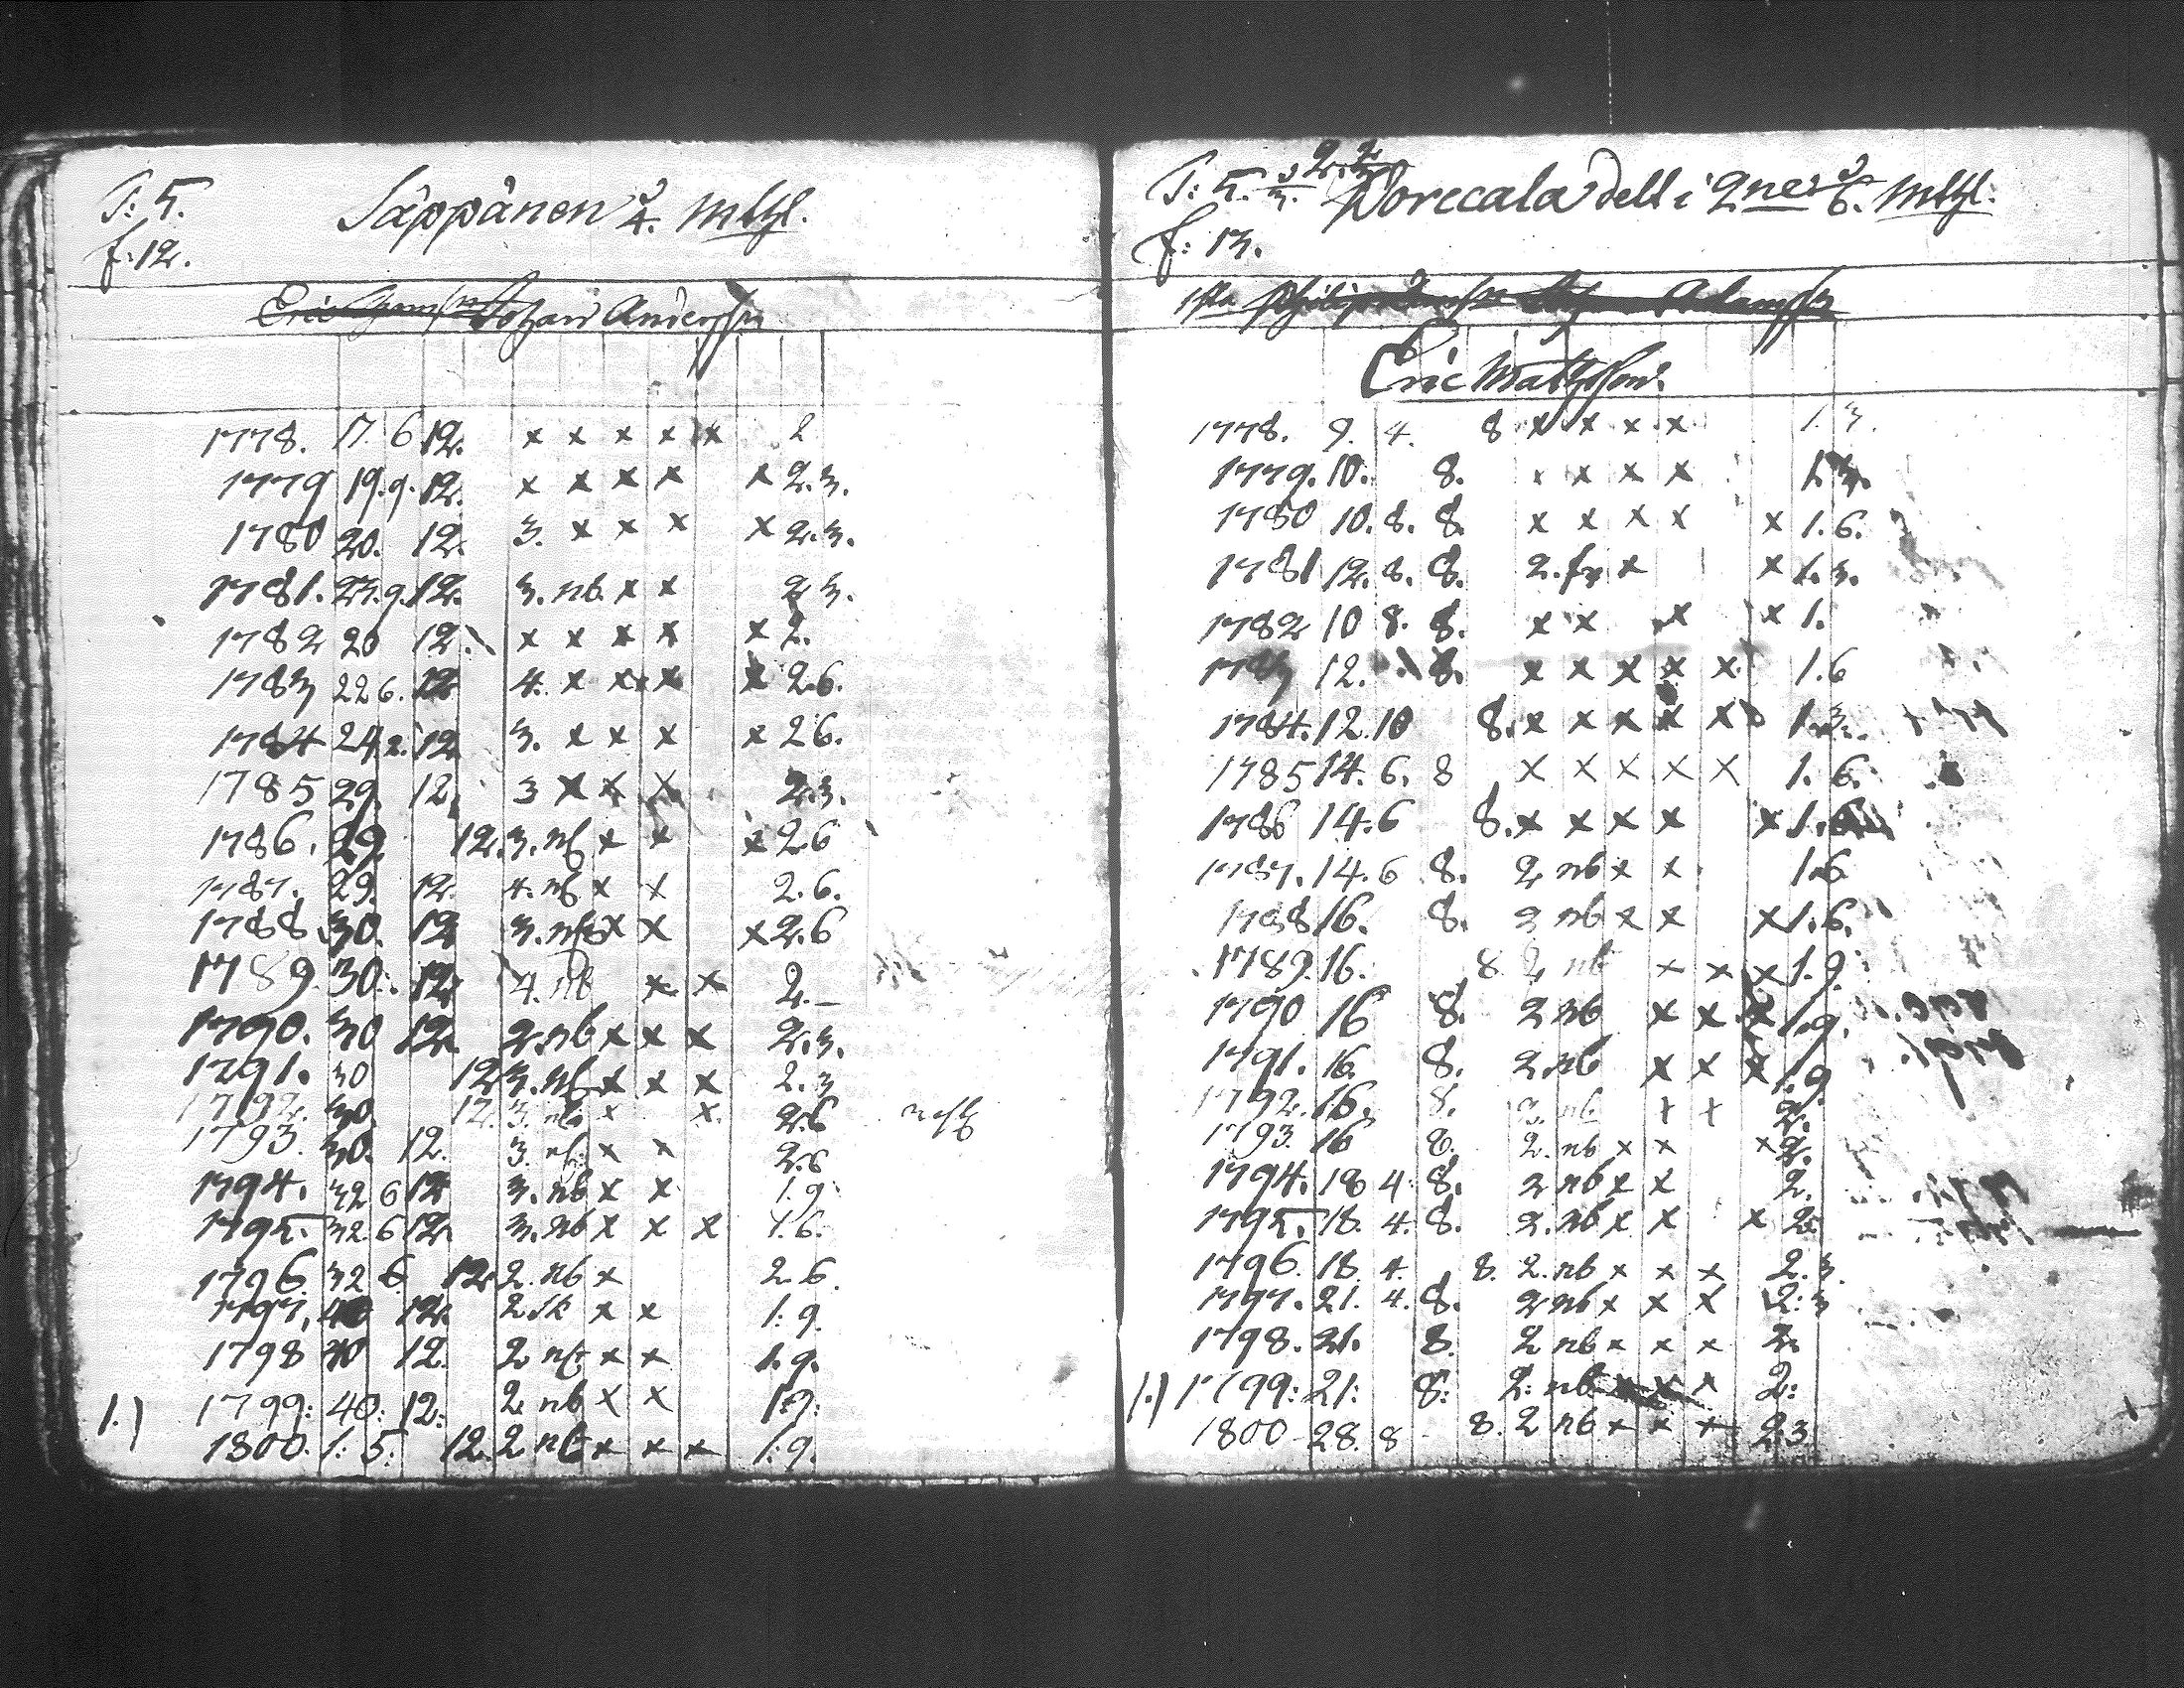 T: 5. Säppänen 3/4. mtl.
f: 12.
Eric Johan Andersson
1778. 17. 6. 12. x x x x x 2
1779 19. 9. 12. x x x x x 2. 3.
1780 20. 12. 3. x x x x 2. 3.
1781. 23. 9. 12. 3. nb. x x 2 3.
1782 20 12. x x x x x 2.
1783 22 6. 12 4. x x x x 2.6.
1784 24. 2. 12 3. x x x x 2 6.
1785 29. 12. 3 x x x 2.3.
1786. 29. 12. 3. nb x x x 2 6
1787. 29. 12. 4. nb x x 2. 6.
1788 30. 12 3. nb x x x 2.6
1789. 30. 12. 4. nb x x 2. –
1790. 30 12. 2. nb x x x 2. 3.
1791. 30 12 3. nb x x x 2. 3
1792. 30. 12. 3. nb x x. 2.6
1793. 30. 12. 3. nb x x 2.6
1794. 32 6 12 3. nb x x 1. 9.
1795. 32. 6 12. 3. nb x x x 1. 6.
1796. 32 6. 12. 2. nb x 2 6.
1797. 40 12. 2 x x 1. 9.
1798 40 12. 2 nb x x 1. 9.
1.) 1799: 40: 12: 2 nb x x 1:9:
1800. 1: 5: 12. 2 nb x x x 1. 9.
T: 5. Porccala dell i 2ne 3/6. mtl:
f: 13.
Adamss
Eric Mattsson.
1778. 9. 4. 8 x x x x 1. 3.
1779. 10. 8. x x x x 1. 3.
1780 10. 8. 8. x x x x x 1. 6.
1781 12. 8. 8. 2. x x 1. 3.
1782 10 8. 8. x x x x 1.
1783 12. 8. x x x x x 1. 6
1784. 12. 10 8. x x x x x 1. 3.
1785 14. 6. 8 x x x x x 1. 6.
1786 14. 6 8. x x x x x 1. 6
1787. 14. 6 8. 2 nb x x 1.6
1788 16. 8. 2 nb x x x 1. 6.
1789. 16. 8 2 nb x x x 1. 9
1790 16 8. 2 nb x x x 1. 9.
1791. 16. 8. 2. nb x x x 1. 9
1792. 16. 8. 2. nb x x 2.
1793. 16 8. 2. nb x x x 2.
1794. 18 4. 8. 2 nb x x 2.
1795. 18. 4. 8. 2. nb x x x 2.
1796. 18. 4. 8. 2. nb x x x 2. 3.
1797. 21. 4. 8. 2 nb x x x 2. 3
1798. 21. 8. 2 nb x x x 2.
1.) 1799: 21: 8: 2: nb x x x 2:
1800 28. 8 8. 2 nb x x x 2.3